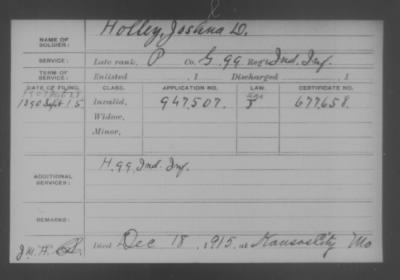 NAME OF SOLDIER: Holley, Joshua D.
SERVICE: Late rank, P Co. G. 99 Reg't Ind. Inf.
TERM OF SERVICE: Enlisted , 1 Discharged , 1
DATE OF FILING. CLASS. APPLICATION NO. LAW. CERTIFICATE NO.
1890 Sept 15 Invalid, 947,507. 677,658.
Widow,
Minor,
ADDITIONAL SERVICES: H. 99 Ind. Inf.
REMARKS:
Died Dec 18, 1915, at Kansas City Mo